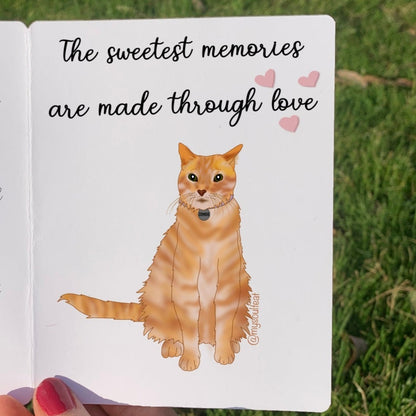 The sweetest memories
are made through love
@mysoulfeat